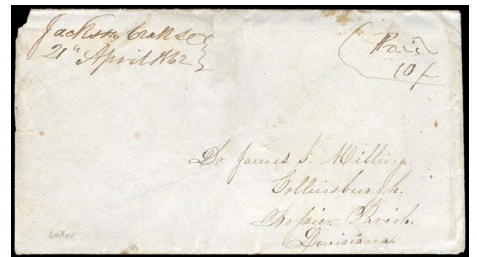 Jacksons Creek So Ca
21st April 1862
Paid
10
Dr James S. Milling
Collinsburgh.
Bossier Parish.
Louisiana